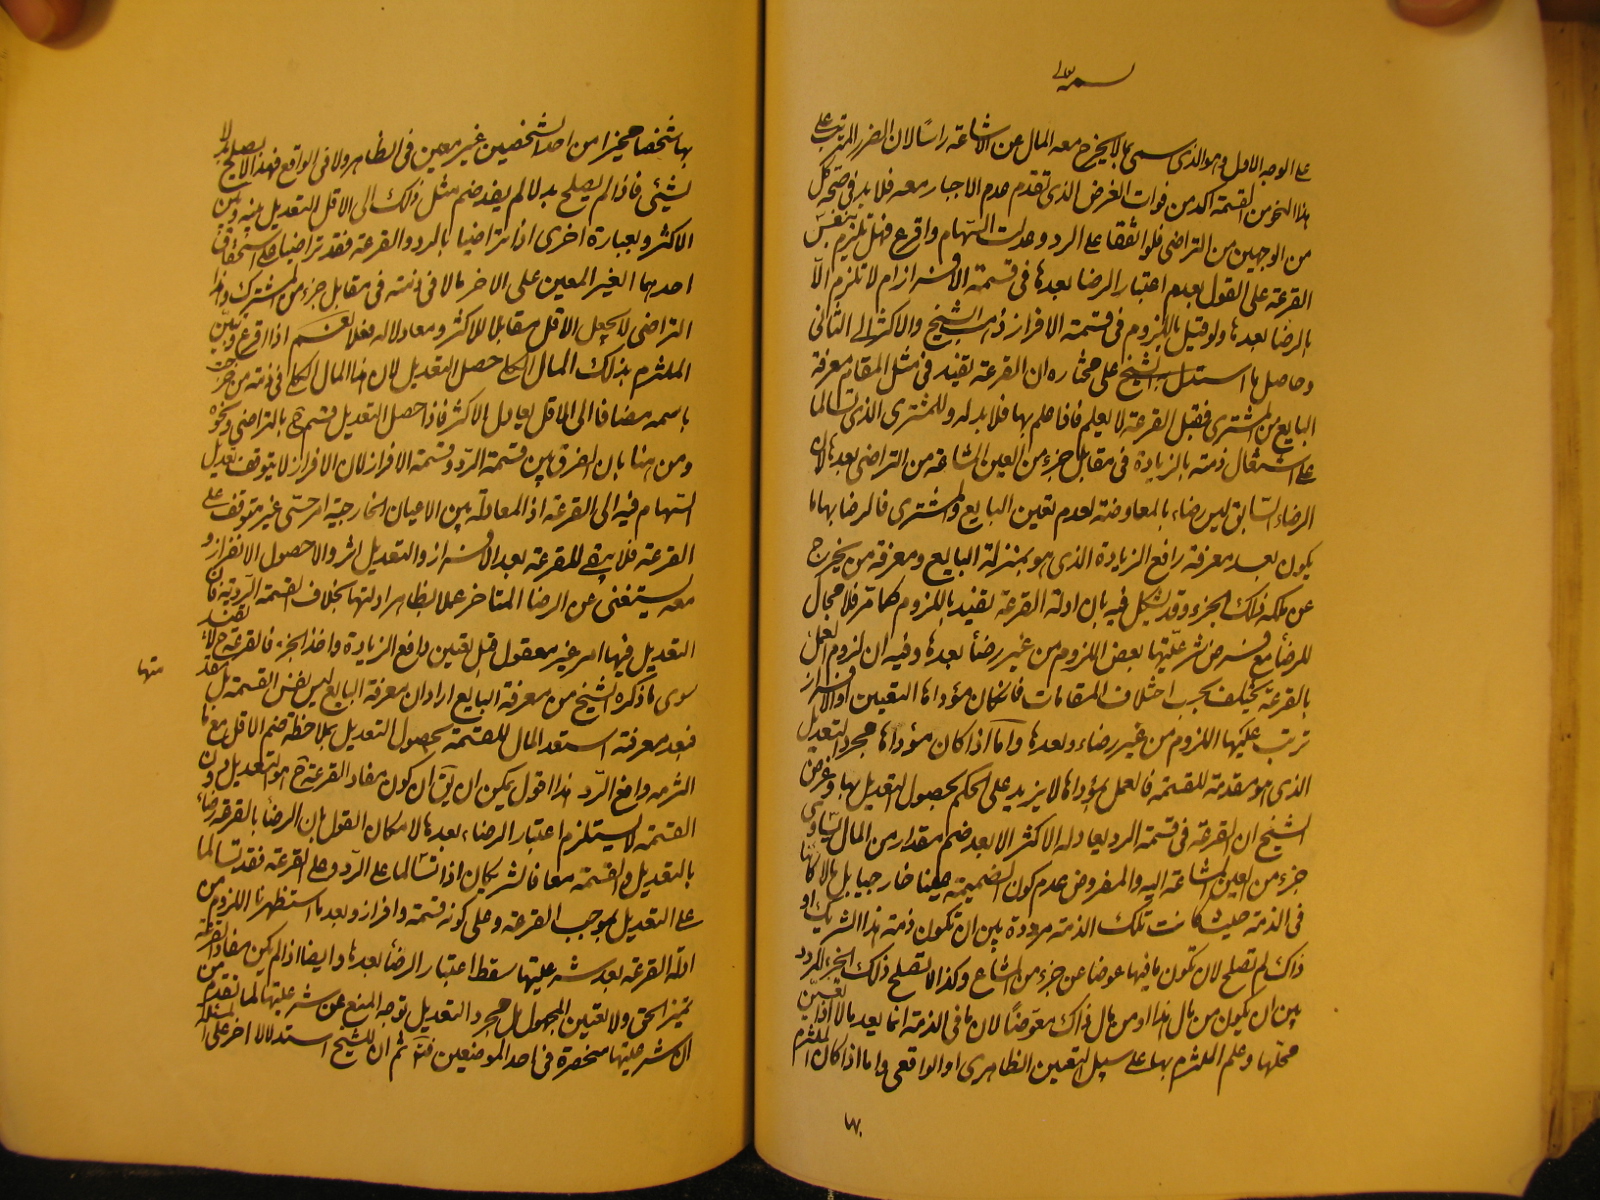 على الوجه الاول وهو الذى سمى بما لا يخرج معه المال عن الاشاعة راسًا لان الضرر المترتب على
هذا النحو من القسمة اكد من فوات الغرض الذى تقدم عدم الاجبار معه فلا بد فى صحة كل
من الوجهين من التراضى فلو اتفقا على الرد وعدلت السّهام واقرع فهل تلزم بنفس
القرعة على القول بعدم اعتبار الرضا بعدها فى قسمة الافراز ام لا تلزم الّا
بالرضا بعدها ولو قيل باللزوم فى قسمة الافراز ذهب الشيخ والاكثر الى الثانى
وحاصل ما استدل الشيخ على مختاره ان القرعة تفيد فى مثل المقام معرفة
البايع من المشترى فقبل القرعة لا يعلم فاذا علم بها فلا بد له وللمشترى الذى تسالما
على اشتغال ذمته بالزيادة فى مقابل جزء من العين المشاعة من التراضى بعدها لان
الرضاء السّابق ليس رضاء بالمعاوضة لعدم تعين البايع والمشترى فالرضا بها انما
يكون بعد معرفة رافع الزيادة الذى هو بمنزلة البايع ومعرفة من يخرج
عن ملكه ذلك الجزء وقد يشكل فيه بان ادلة القرعة تفيد باللزوم كما مر فلا مجال
للرضأ مع فرض شرعيّتها بعض اللزوم من غير رضأ بعدها وفيه ان لزوم العمل
بالقرعة يختلف بحسب اختلاف المقامات فان كان مؤداها التعيين او الافراز
ترتب عليها اللزوم من غير رضاء بعدها وامّا اذا كان مؤداها مجرد التعديل
الذى هو مقدمة للقسمة فالعمل بمؤداها لا يزيد على الحكم بحصول التعديل بها وغرض
الشيخ ان القرعة فى قسمة الرد يعادله الاكثر الا بعد ضم مقدار من المال يساوى
جزء من العين المشاعة اليه والمفروض عدم كون الضميمة عينا خارجيا بل مالا كائنًا
فى الذمة حيث كانت تلك الذمة مرددة بين ان تكون ذمة هذا الشريك او
ذاك لم تصلح لان تكون ما فيها عوضا عن جزء من المشاع وكذا لا تصلح ذلك الجزء المردد
بين ان يكون من مال هذا او من مال ذاك معوّضًا لان ما فى الذمة انما يعد مالا اذا تعيّن
محلّها وعلم الملتزم بها على سبيل التعيين الظاهرى او الواقعى واما اذا كان الملتزم
بها
بها شخصا مخيرا من احد الشخصين غير معين فى الظاهر ولا فى الواقع فهذا لا يصلح بدلا
لشئى فاذا لم يصلح بدلا لم يفد ضم مثل ذلك الى الاقل التعديل بينه وبين
الاكثر وبعبارة اخرى اذا تراضيا بالرد والقرعة فقد تراضيا على استحقاق
احدهما الغير المعين على الاخر مالا فى ذمته فى مقابل جزء من المشترك وهذا
التراضى لا يجعل الاقل مقابلا للاكثر ومعادلا له فعلا نعم اذا اقرع وتبين
الملتزم بذلك المال الكلى حصل التعديل لان هذا المال الكلى فى ذمة من خرج
باسمه مضافا الى الاقل يعادل الاكثر فاذا حصل التعديل قسم ح بالتراضى ونحوه
ومن هنا بان الفرق بين قسمة الرّد وقسمة الافراز لان الافراز لا يتوقف تعديل
السّهام فيه الى القرعة اذ المعادلة بين الاعيان الخارجية امر حسّى غير متوقف على
القرعة فلا يبقى للقرعة بعد الافراز والتعديل اثر والا حصول الانفراز و
معه يستغنى عن الرضا المتاخر عملا بظاهر ادلتها بخلاف القسمة الرّدية فان
التعديل فيها امر غير معقول قبل تعين دافع الزيادة واخذ الجزء فالقرعة ح لا تفيد
سوى ما ذكره الشيخ من معرفة البايع اراد ان معرفة البايع ليس نفس القسمة بل
متها
فبعد معرفته استعد المال للقسمة بحصول التعديل بملاحظة ضم الاقل مع ما
التزمه دافع الرّد هذا اقول يمكن ان يق ان كون مفاد القرعة ح هو التعديل دون
القسمة لا يستلزم اعتبار الرضاء بعدها لامكان القول بان الرضأ بالقرعة رضاء
بالتعديل والقسمة معا فالشريكان اذا تسالما على الرّد وعلى القرعة فقد تسالما
على التعديل بموجب القرعة وعلى كونه قسمة وافراز وبعد ما استظهرنا اللزوم من
ادلّة القرعة بعد شرعيتها سقط اعتبار الرضأ بعدها وايضا اذا لم يكن مفاد القرعة
تميز الحق ولا تعيين المجهول بل مجرد التعديل توجه المنع عن شرعيتها لما تقدم من
ان شرعيتها منحصرة فى احد الموضعين فتأمل ثم ان للشيخ استدلالا اخر على المسئلة